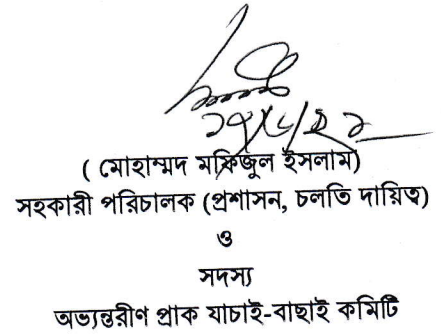 ( মোহাম্মদ মফিজুল ইসলাম)
সহকারী পরিচালক (প্রশাসন, চলতি দায়িত্ব)
ও
সদস্য
অভ্যন্তরীণ প্রাক যাচাই-বাছাই কমিটি